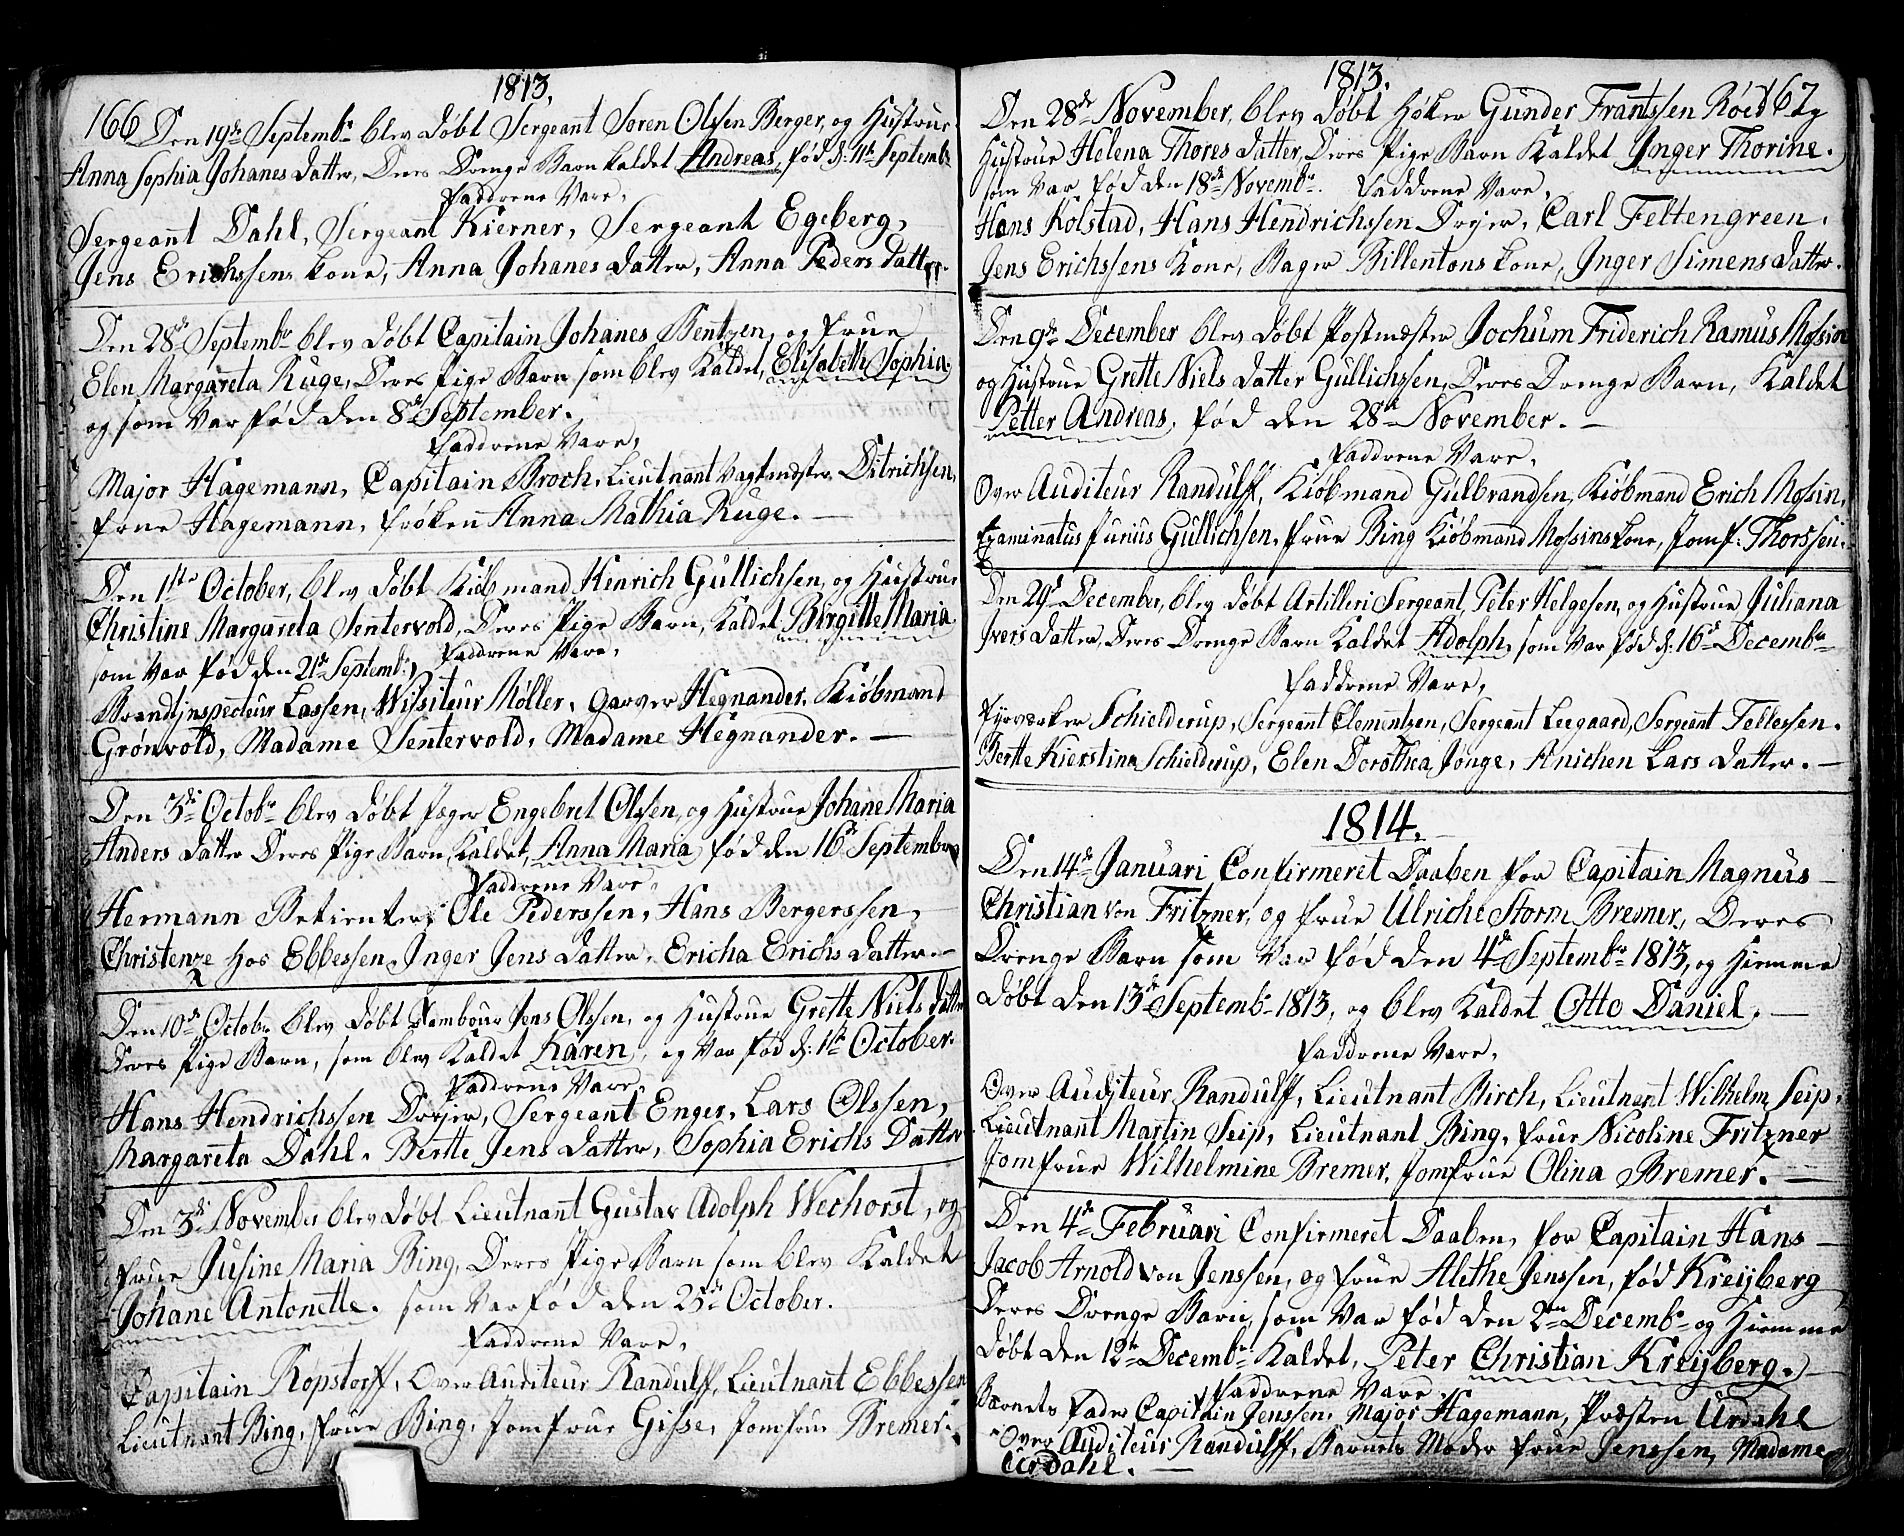 1813.
166 Den 19de Septembr blev döbt Sergeant Sören Olssen Berger, og Hustrue
Anna Sophia Johanes datter, Deres Drenge Barn kaldet Andreas, föd d: 11te Septembr
Faddrene Vare,
Sergeant Dahl, Sergeant Kierner, Sergeant Egeberg,
Jens Erichssens kone, Anna Johanes datter, Anna Peders datter.
Den 28de Septembr blev döbt Capitain Johanes Bentzen, og Frue
Elen Margareta Ruge, Deres Pige Barn som blev kaldet, Elisabeth Sophia
og som Var föd den 8de September.
Faddrene Vare,
Major Hagemann, Capitain Broch, Lieutnant Vagtmester Ditrichsen,
Frue Hagemann, Fröken Anna Mathia Ruge. —
Den 1ste October, blev döbt Kiöbmand Hinrich Gullichsen, og Hustrue
Christine Margareta Sentervold, Deres Pige Barn, kaldet Birgitte Maria
som Var föd den 21de Septembr, Faddrene Vare,
Brandtjnspecteur Lassen, Wisiteur Møller, Garver Hegnander, Kiöbmand
Grönvold, Madame Sentervold, Madame Hegnander. —
Den 3de Octobr blev döbt Jæger Engebret Olssen, og Hustrue Johane Maria
Anders datter Deres Pige Barn, kaldet, Anna Maria, föd den 16de September
Faddrene Vare,
Hermann Betienter, Ole Pederssen, Hans Bergerssen,
Christenze hos Ebbessen, Inger Jens datter, Ericha Erichs datter. —
Den 10de Octobr blev döbt Tambour Jens Olssen, og Hustrue Grette Niels datter
Deres Pige Barn, som blev kaldet Karen, og Var föd d: 1te October.
Faddrene Vare,
Hans Hendrichssen Dreyer, Sergeant Enger, Lars Olssen,
Margareta Dahl, Bertte Jens datter, Sophia Erichs Datter
Den 3de November blev döbt Lieutnant Gustav Adolph Wechorst, og
Frue Jusine Maria Bing, Deres Pige Barn som blev kaldet
Johane Antonette. som Var föd den 25de October.
Faddrene Vare,
Capitain Ropstorff, Over Auditeur Randulff, Lieutnant Ebbessen
Lieutnant Bing, Frue Bing, Jomfrue Gisse, Jomfrue Bremer.
1813.
167
Den 28de November, blev döbt Höker Gunder Frantssen Röed og
Hustrue Helena Thores datter, Deres Pige Barn kaldet Inger Thorine.
som Var föd den 18de Novembr. Faddrene Vare,
Hans Kolstad, Hans Hendrichssen Dreyer, Carl Feltengreen.
Jens Erichssens kone, Bager Billentons kone, Inger Simens datter.
Den 9de December blev döbt Postmester Jochum Friderich Ramus Mossin
og Hustrue Grette Niels datter Gullichssen, Deres Drenge Barn, kaldet
Petter Andreas, föd den 28de November. —
Faddrene Vare,
Over Auditeur Randulff, Kiöbmand Gulbrandsen, Kiöbmand Erich Mossin,
Examinatus Junius Gullichsen, Frue Bing Kiöbmand Mossins kone, Jomf: Thorssen.
Den 29de December, blev döbt Artilleri Sergeant, Peter Helgesen, og Hustrue Juliana
Ivers datter, Deres Drenge Barn kaldet Adolph, som Var föd d: 16de Decembr
Faddrene Vare,
Fyrverker Schielderup, Sergeant Clementzen, Sergeant Leegaard, Sergeant Tellessen.
Bertte Kierstina Schielderup, Elen Dorothea Jönge, Anichen Lars datter. —
1814.
Den 14de Januari Confirmeret Daaben for Capitain Magnus
Christian von Fritzner, og Frue Ulriche Storm Bremer, Deres
Drenge Barn som Var föd den 4de Septembr 1813, og Hiemme
döbt den 13de Septembr 1813, og blev kaldet Otto Daniel. —
Faddrene Vare,
Over Auditeur Randulff, Lieutnant Birch, Lieutnant Wilhelm Seip,
Lieutnant Martin Seip, Lieutnant Bing, Frue Nicoline Fritzner
Jomfrue Wilhelmine Bremer, Jomfrue Olina Bremer. —
Den 4de Februari Confirmeret Daaben, for Capitain Hans
Jacob Arnold von Jenssen, og Frue Alethe Jenssen, föd Kreijberg
Deres Drenge Barn, som Var föd den 2den Decembr og Hiemme
döbt den 12te Decembr kaldet, Peter Christian Kreijberg.
Faddrene Vare,
Barnets Fader Capitain Jenssen, Major Hagemann, Præsten Urdahl
Over Auditeur Randulff, Barnets Moder Frue Jenssen, Madame
Urdahl. —